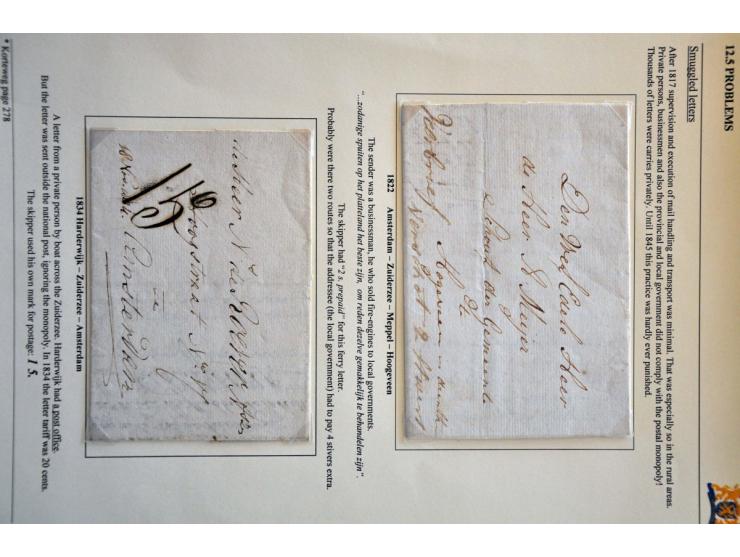 12.5 PROBLEMS
Smuggled letters
After 1817 supervision and execution of mail handling and transport was minimal. That was especially so in the rural areas.
Private persons, businessmen and also the provincial and local government did not comply with the postal monopoly!
Thousands of letters were carries privately. Until 1845 this practice was hardly ever punished.
Den Wel Edele Heer
de Heer N Meijer
te
Hogeveen
1822 Amsterdam – Zuiderzee – Meppel – Hoogeveen
The sender was a businessman, he who sold fire-engines to local governments.
"...zodanige spuiten op het platteland het beste zijn, om reden dezelve gemakkelijk te behandelen zijn".
The skipper had "2 s. prepaid" for this ferry letter.
Probably were there two routes so that the addressee (the local government) had to pay 4 stivers extra.
de Heer N
Hoogstraat No
15
te
Amsterdam
1834 Harderwijk – Zuiderzee – Amsterdam
A letter from a private person by boat across the Zuiderzee. Harderwijk had a post office.
But the letter was sent outside the national post, ignoring the monopoly. In 1834 the letter tariff was 20 cents.
The skipper used his own mark for postage: 1 5.
* Korteweg page 278